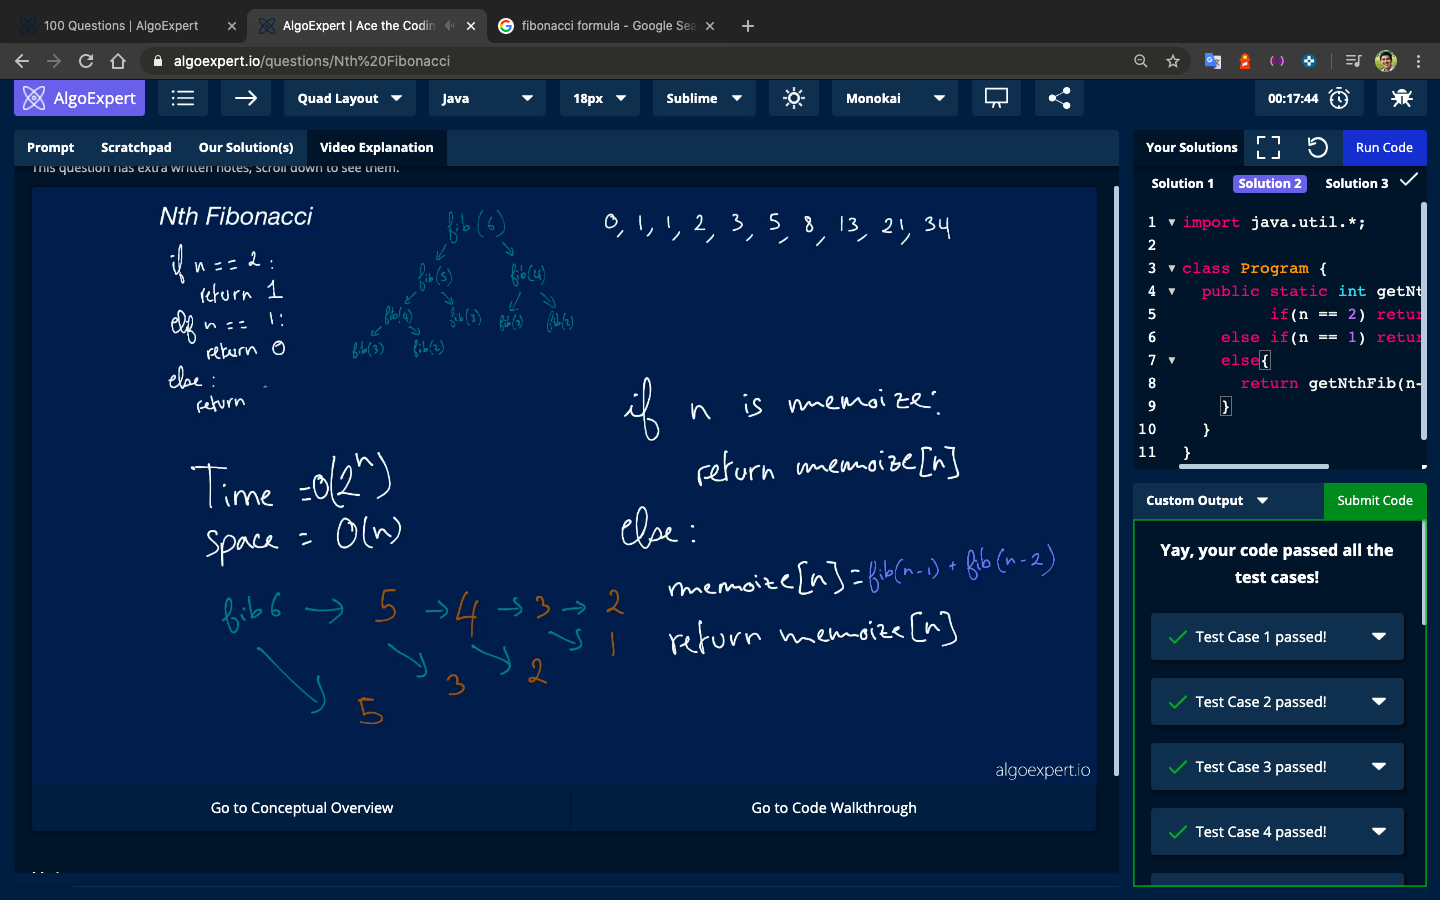 100 Questions | AlgoExpert
AlgoExpert | Ace the Codin
fibonacci formula - Google Sea
algoexpert.io/questions/Nth%20Fibonacci
AlgoExpert
Quad Layout
Java
18px
Sublime
Monokai
00:17:44
Prompt
Scratchpad
Our Solution(s)
Video Explanation
This question has extra written notes; scroll down to see them.
Nth Fibonacci
if n == 2 :
return 1
elif n == 1:
return 0
else :
return
fib(6)
fib(5) fib(4)
fib(4) fib(3) fib(3) fib(2)
fib(3) fib(2)
0, 1, 1, 2, 3, 5, 8, 13, 21, 34
Time = O(2^n)
space = O(n)
if n is memoize:
return memoize[n]
else :
memoize[n] = fib(n-1) + fib(n-2)
return memoize[n]
fib6 → 5 → 4 → 3 → 2
5 3 2 1
algoexpert.io
Go to Conceptual Overview
Go to Code Walkthrough
Your Solutions
Run Code
Solution 1
Solution 2
Solution 3
1 import java.util.*;
2
3 class Program {
4 public static int getNt
5 if(n == 2) retur
6 else if(n == 1) retur
7 else{
8 return getNthFib(n-
9 }
10 }
11 }
Custom Output
Submit Code
Yay, your code passed all the
test cases!
Test Case 1 passed!
Test Case 2 passed!
Test Case 3 passed!
Test Case 4 passed!